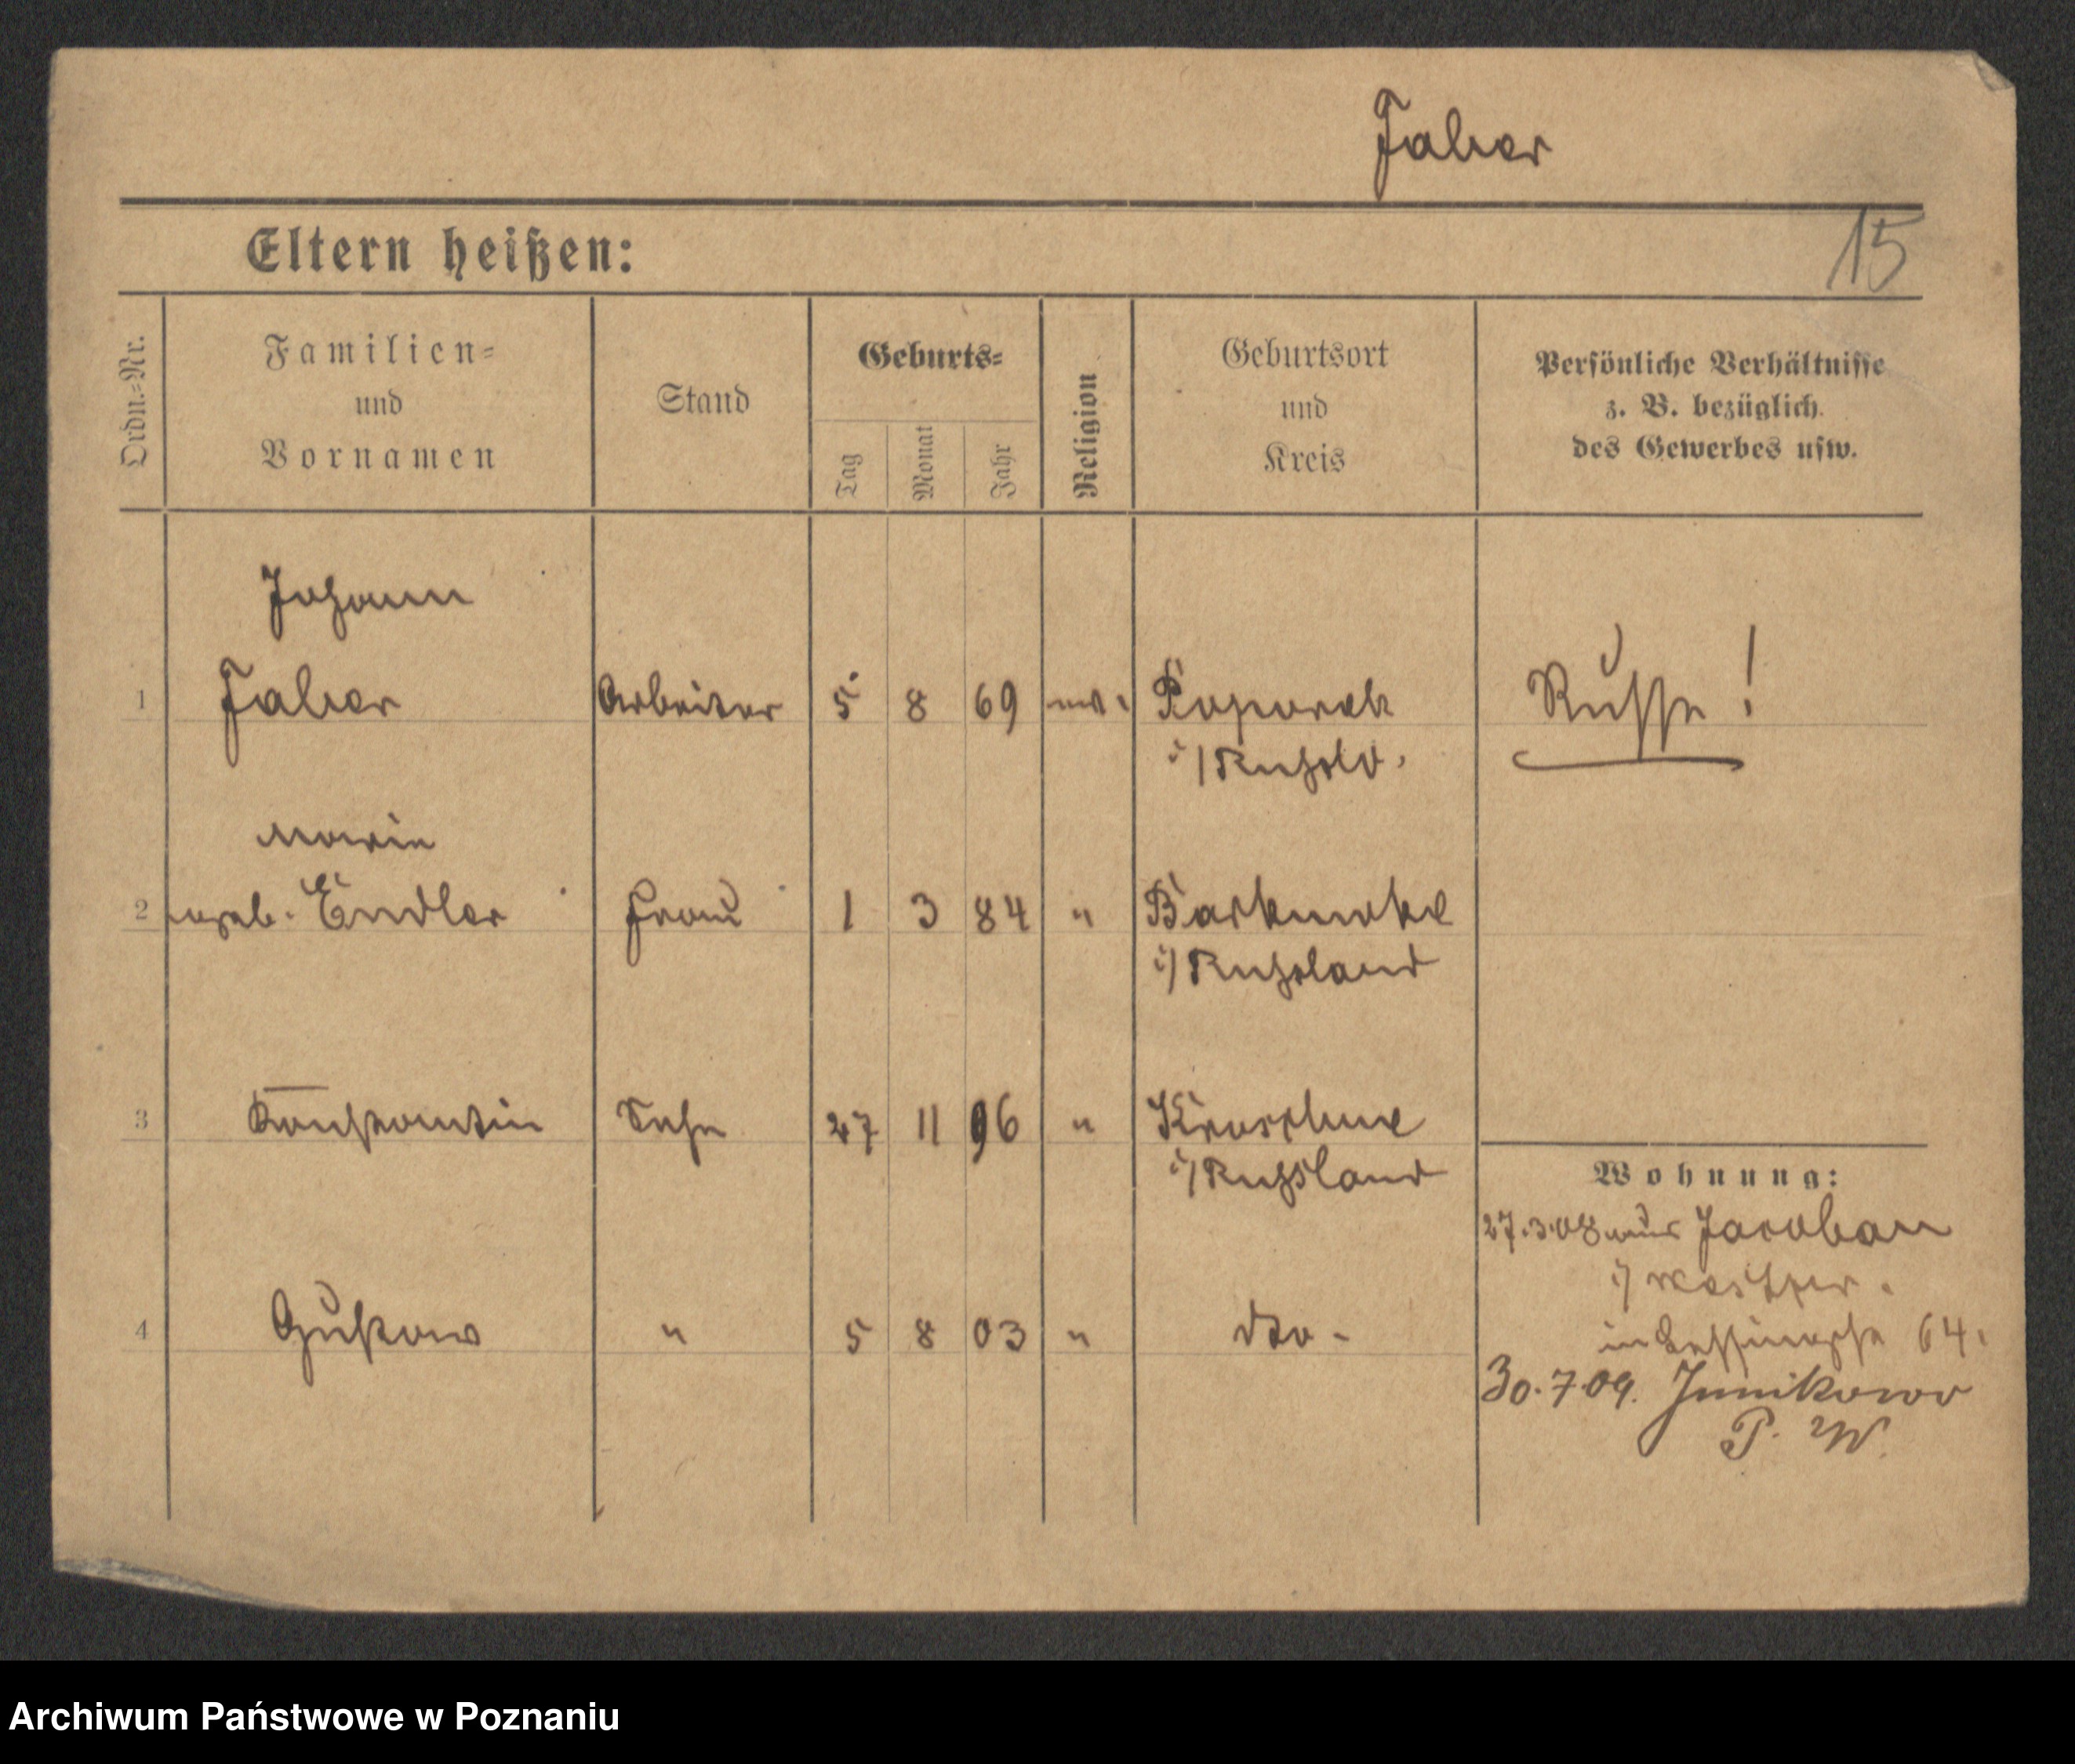 Faber
Eltern heißen:
15
Ordn.-Nr.
Familien- und Vornamen
Stand
Geburts-
Tag
Monat
Jahr
Religion
Geburtsort und Kreis
Persönliche Verhältnisse
z. B. bezüglich
des Gewerbes usw.
Johann
1 Faber Arbeiter 5 8 69 ev. Russe!
i/Russld.
Marie
2 geb. Endler Frau 1 3 84 "
i/Russland
3 Konstantin Sohn 27 11 96 "
i/Russland
Wohnung:
27.3.08 aus Jacobau
i/Westpr.
4 Gustav " 5 8 03 " dto-
in 64.
30.7.09. Junikowo
P. W.
Archiwum Państwowe w Poznaniu